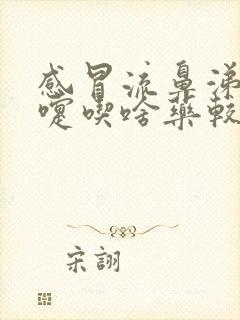 感冒流鼻涕
嚏喫啥藥較
宋詡